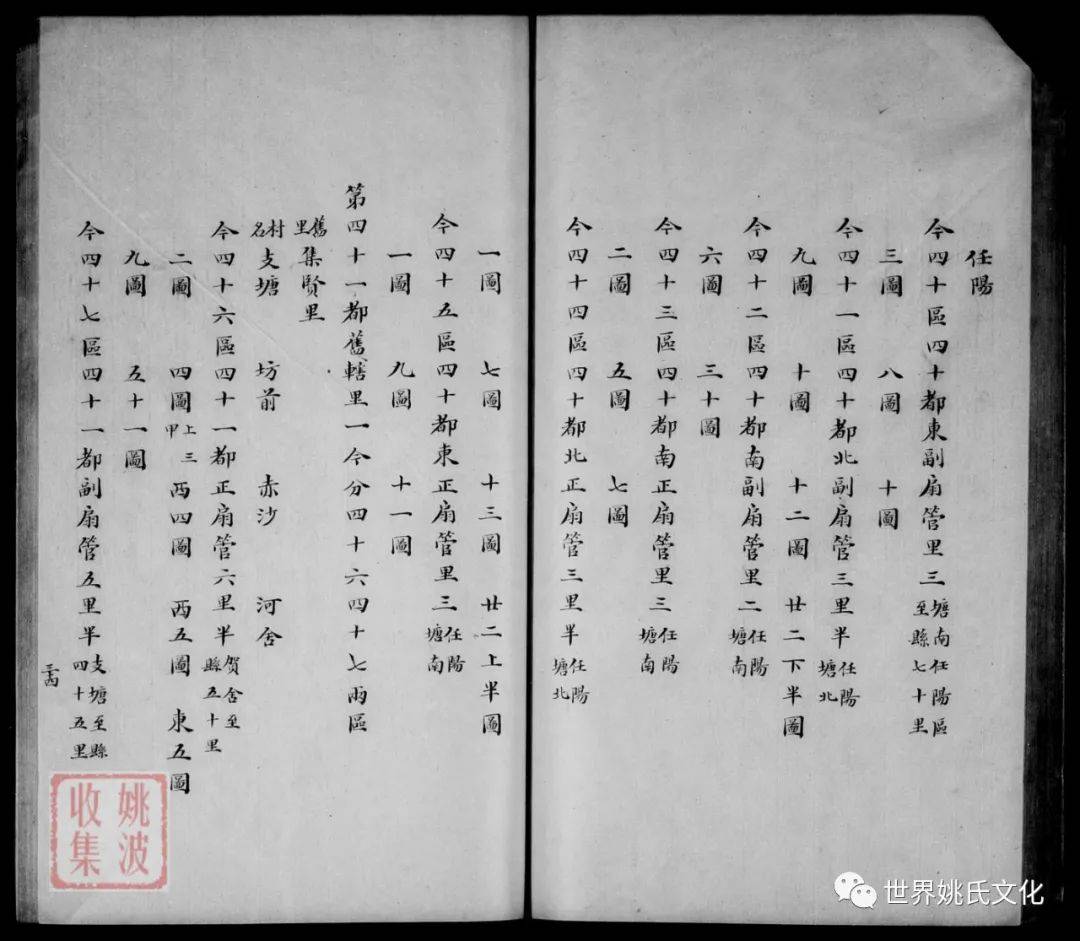 任陽
今四十區四十都東副扇管里三塘南任陽區至縣七十里
三圖 八圖 十圖
今四十一區四十都北副扇管三里半任陽塘北
九圖 十圖 十二圖 廿二下半圖
今四十二區四十都南副扇管里二任陽塘南
六圖 三十圖
今四十三區四十都南正扇管里三任陽塘南
二圖 五圖 七圖
今四十四區四十都北正扇管三里半任陽塘北
一圖 七圖 十三圖 廿二上半圖
今四十五區四十都東正扇管里三任陽塘南
一圖 九圖 十一圖
第四十一都舊轄里一今分四十六四十七兩區
舊里集賢里
村名支塘 坊前 赤沙 河舍
今四十六區四十一都正扇管六里半賀舍至縣五十里
二圖 四圖上三甲 西四圖 西五圖 東五圖
九圖 五十一圖
今四十七區四十一都副扇管五里半支塘至縣四十五里
姚波收集
世界姚氏文化